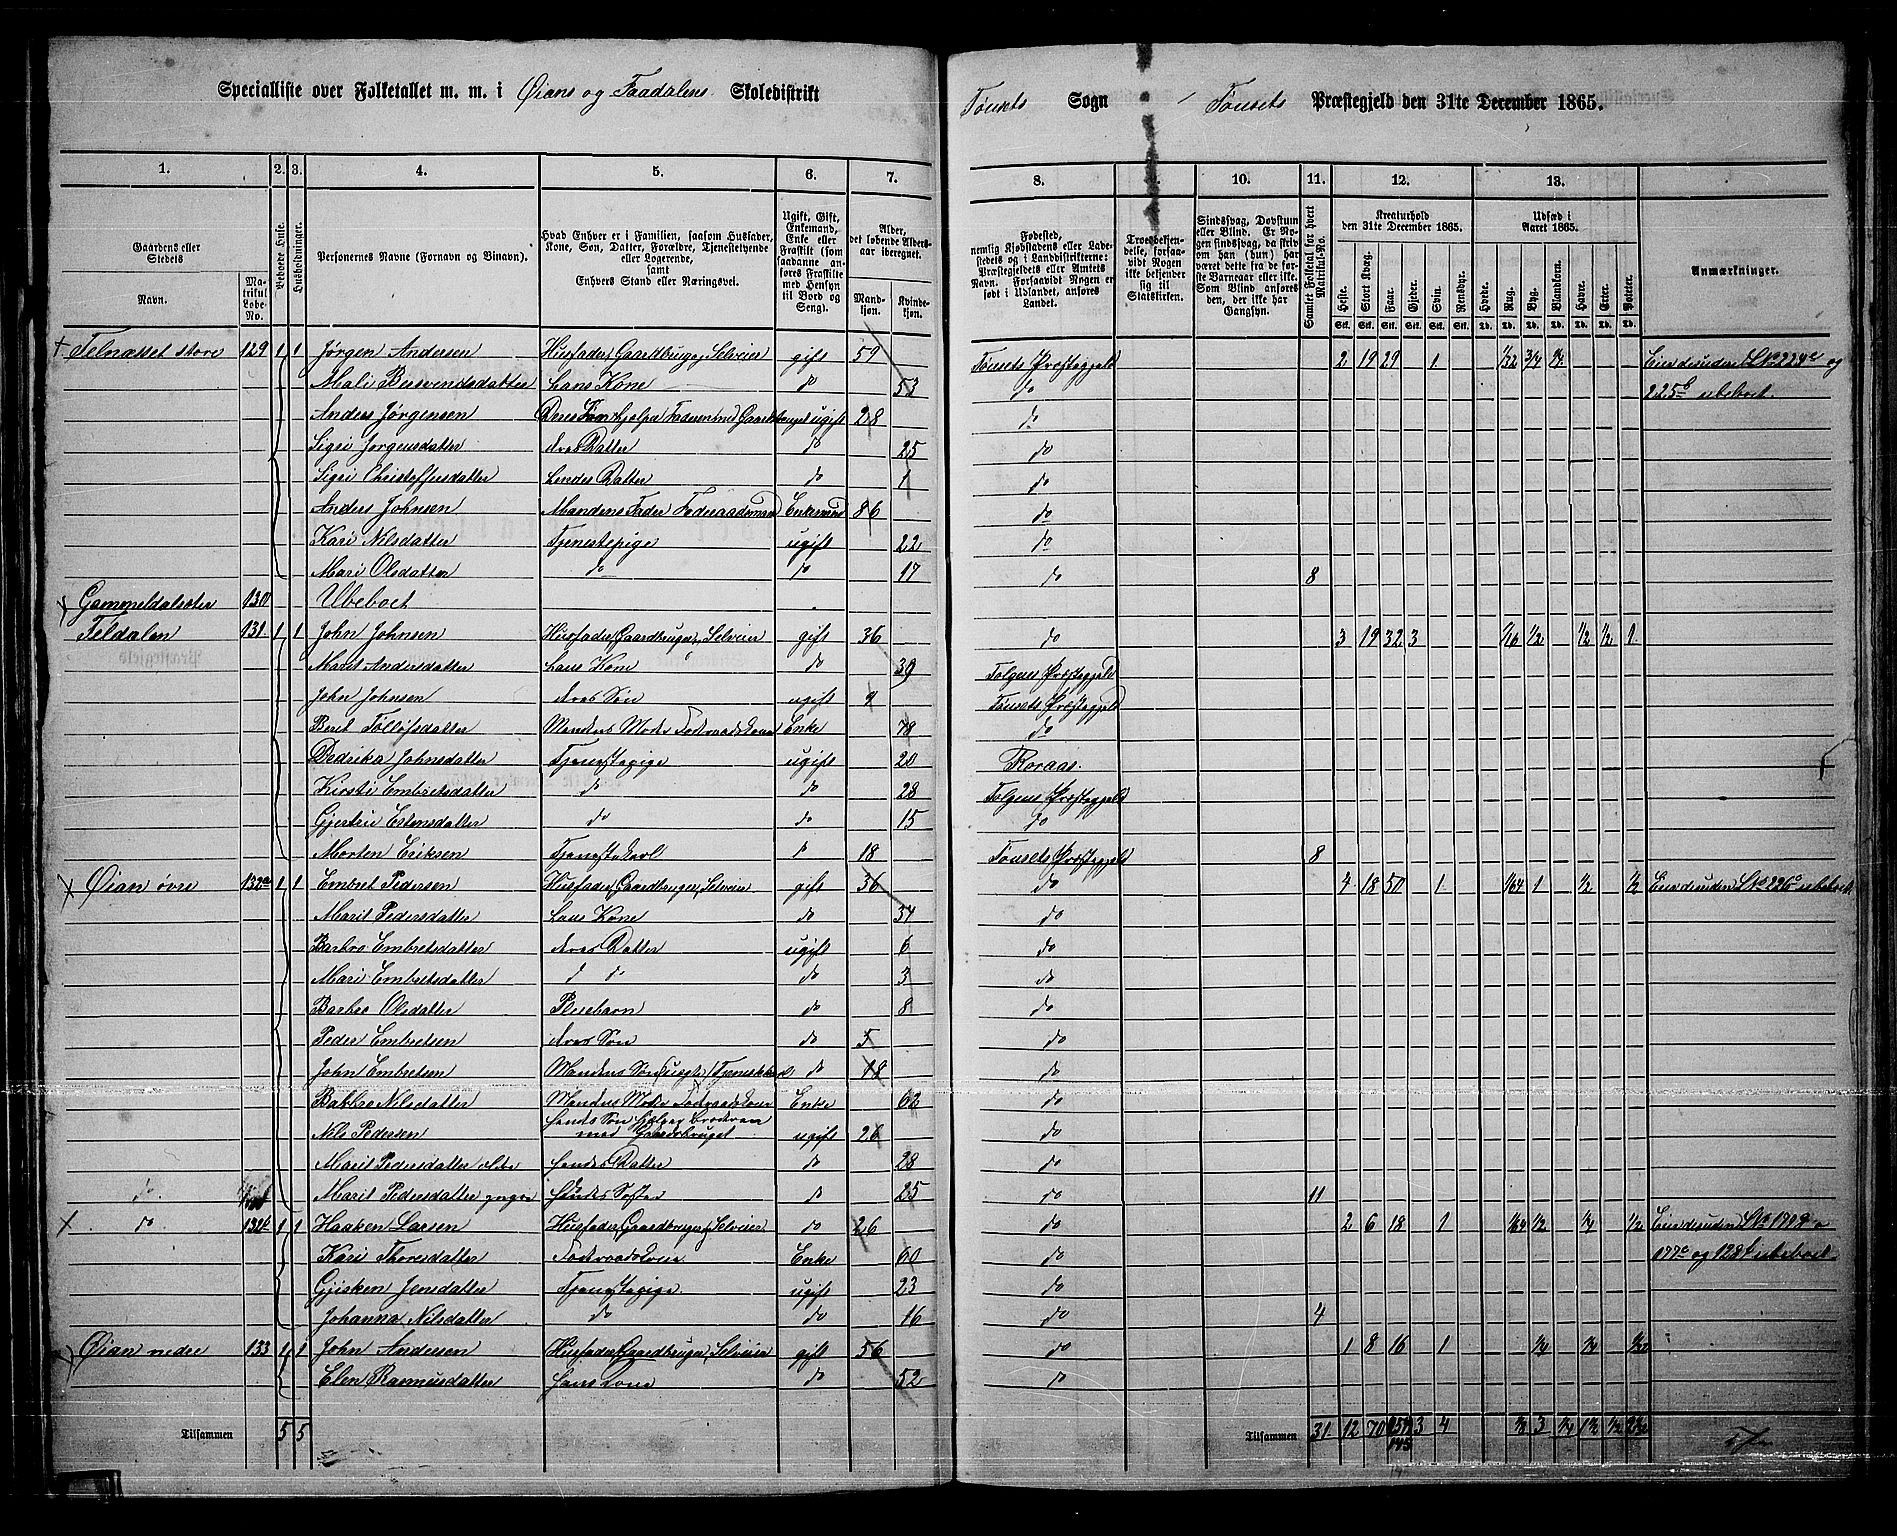 Specialliste over Folketallet m. m. i Øians og Faadalens Skoledistrikt
Tønsets Sogn Tønsets Præstegjeld den 31te December 1865.
1. 2. 3. 4. 5. 6. 7. 8. 10. 11. 12. 13.
Gaardens eller Stedets Navn. Matrikul Løbe-No. Beboede Huse. Husholdninger. Personernes Navne (Fornavn og Binavn).
Hvad Enhver er i Familien, saasom Husfader, Kone, Søn, Datter, Forældre, Tjenestetyende eller Logerende, samt Enhvers Stand eller Næringsvei.
Ugift, Gift, Enkemand, Enke eller Fraskilt (som saadanne anføres Fraskilte med Hensyn til Bord og Seng).
Alder, det løbende Aldersaar iberegnet. Mandkjøn. Kvindekjøn.
Fødested, nemlig Kjøbstadens eller Ladestedets og i Landdistrikterne: Præstegjeldets eller Amtets Navn. Forsaavidt Nogen er født i Udlandet, anføres Landet.
Troesbekjendelse, forsaavidt Nogen ikke bekjender sig til Statskirken.
Sindssvag, Døvstum eller Blind. Er Nogen sindssvag, da skriv om han (hun) har været dette fra de første Barneaar eller ei. Som Blind anføres den, der ikke har Gangsyn.
Samlet Folketal for hvert Matrikul-No.
Kreaturhold den 31te December 1865. Heste. Stort Kvæg. Faar. Gjeder. Svin. Rensdyr.
Udsæd i Aaret 1865. Hvede. Rug. Byg. Blandkorn. Havre. Erter. Poteter.
Anmærkninger.
Telnæsset store 129 1 1 Jørgen Andersen Husfader, Gaardbruger, Selveier gift 59 Tønsets Præstegjeld 2 19 29 1 1/32 3/4 1/4
Mali Bersvendsdatter hans Kone do 53 do 225b ubeboet.
Anders Jørgensen ugift 28 do
Sigri Jørgensdatter Datter do 25 do
Sigri Christoffersdatter Datter do 1 do
Anders Johnsen Mandens Fader Føderaadsmand Enkemand 86 do
Kari Nilsdatter Tjenestepige ugift 22 do
Mari Olsdatter do do 17 do 8
Gammeldalseter 130 Ubeboet
Teldalen 131 1 1 John Johnsen Husfader, Gaardbruger, Selveier gift 36 do 3 19 32 3 1/16 1/2 1/2 1/2 1
Marit Andersdatter hans Kone do 39 Tolgens Præstegjeld
John Johnsen deres Søn ugift 9 Tønsets Præstegjeld
Berit Tollofsdatter Mandens Moder Føderaadskone Enke 78 do
Dedrika Johnsdatter Tjenestepige ugift 20 Roraas.
Kirsti Embretsdatter do do 28 Tolgens Præstegjeld
Gjertru Estensdatter do do 15 do
Morten Eriksen Tjenestekarl 18 Tønsets Præstegjeld 8
Øian øvre 132a 1 1 Embret Pedersen Husfader, Gaardbruger, Selveier gift 36 do 4 18 50 1 1/64 1 1/2 1/2
Marit Pedersdatter hans Kone do 34 do
Barbro Embretsdatter deres Datter ugift 6 do
Mari Embretsdatter d do do 3 do
Barbro Olsdatter Pleiebarn do 8 do
Peder Embretsen deres Søn do 5 do
John Embretsen Mandens Søn do 18 do
Babbro Nilsdatter Mandens Moder Føderaadskone Enke 62 do
Nils Pedersen hendes Søn hjælper Broderen med Gaardsbruget ugift 26 do
Marit Pedersdatter ældre hendes Datter do 28 do
do Marit Pedersdatter yngre hendes Søster do 25 do 11
do 132b 1 1 Haaken Larsen Husfader, Gaardbruger, Selveier do 26 do 2 6 18 1 1/64 1/2 1/4 1/2
Kari Thoresdatter Føderaadskone Enke 60 do 177c og 128b ubeboet
Gjisken Jensdatter Tjenestepige ugift 23 do
Johanna Nilsdatter do do 16 do 4
Øian nedre 133 1 1 John Andersen Husfader, Gaardbruger, Selveier gift 56 do 1 8 16 1 1/4 1/4
Elen Rasmusdatter hans Kone do 52 do
Tilsammen 5 5 Tilsammen 31 12 70 145 3 4 3 1/4 1 1/2 1/2